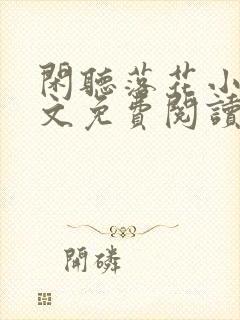 閑聽落花小
文免費閱讀
開磷